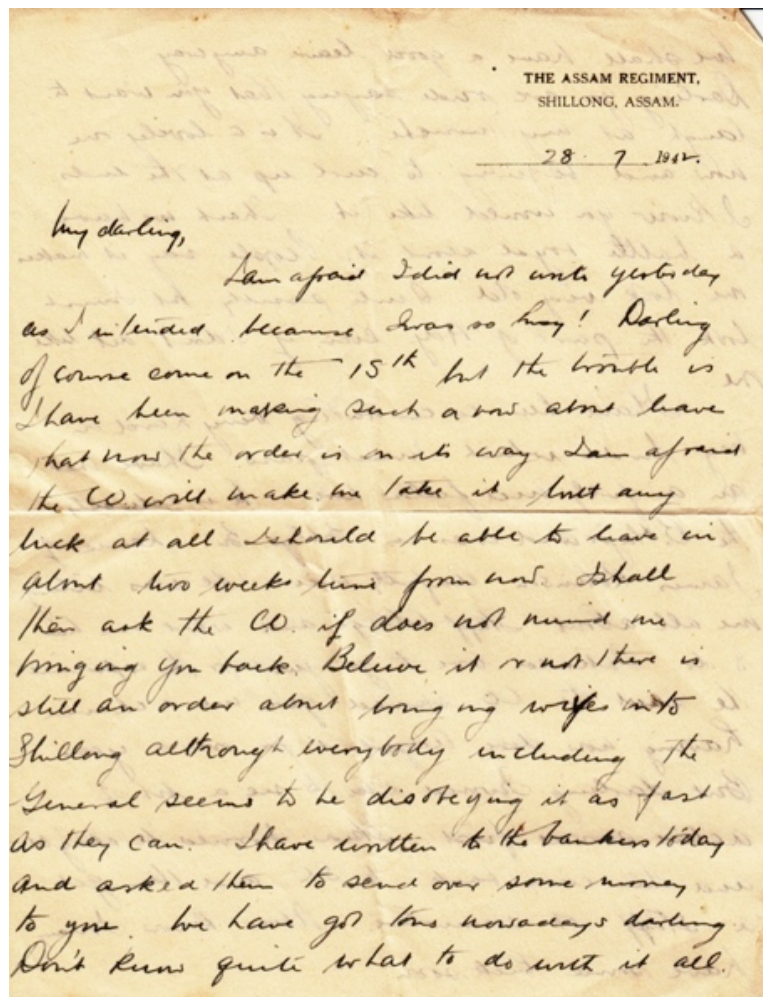 THE ASSAM REGIMENT,
SHILLONG, ASSAM.
28. 7 1942.
My darling,
I am afraid I did not write yesterday
as I intended because I was so busy! Darling
of course come on the 15th but the trouble is
I have been making such a row about leave
that now the order is on its way I am afraid
the CO will make me take it but any
luck at all I should be able to leave in
about two weeks time from now I shall
then ask the CO. if does not mind me
bringing you back. Believe it or not there is
still an order about bringing wifes into
Shillong although everybody including the
General seems to be disobeying it as fast
as they can. I have written to the bankers today
and asked them to send over some money
to you. We have got tons nowadays darling
Don't know quite what to do with it all.